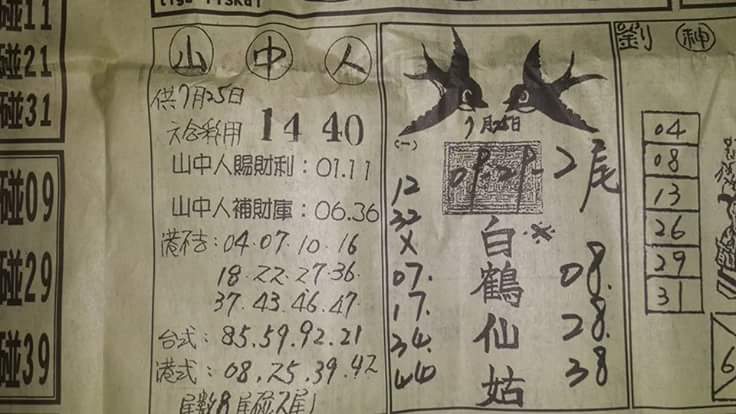 碰11
碰21
碰31
碰09
碰29
碰39
山中人
供7月25日
六合彩用 14 40
山中人賜財利：01.11
山中人補財庫：06.36
港不去：04.07.10.16
18.22.27.36.
37.43.46.47
台式：85.59.92.21
港式：08.25.39.42
尾數8尾碰2尾
7月25日
(一)
09.29-2尾
12
32
X
07.
17.
34.
44
白鶴仙姑
08.
28.
38
劉 神
04
08
13
26
29
31
6